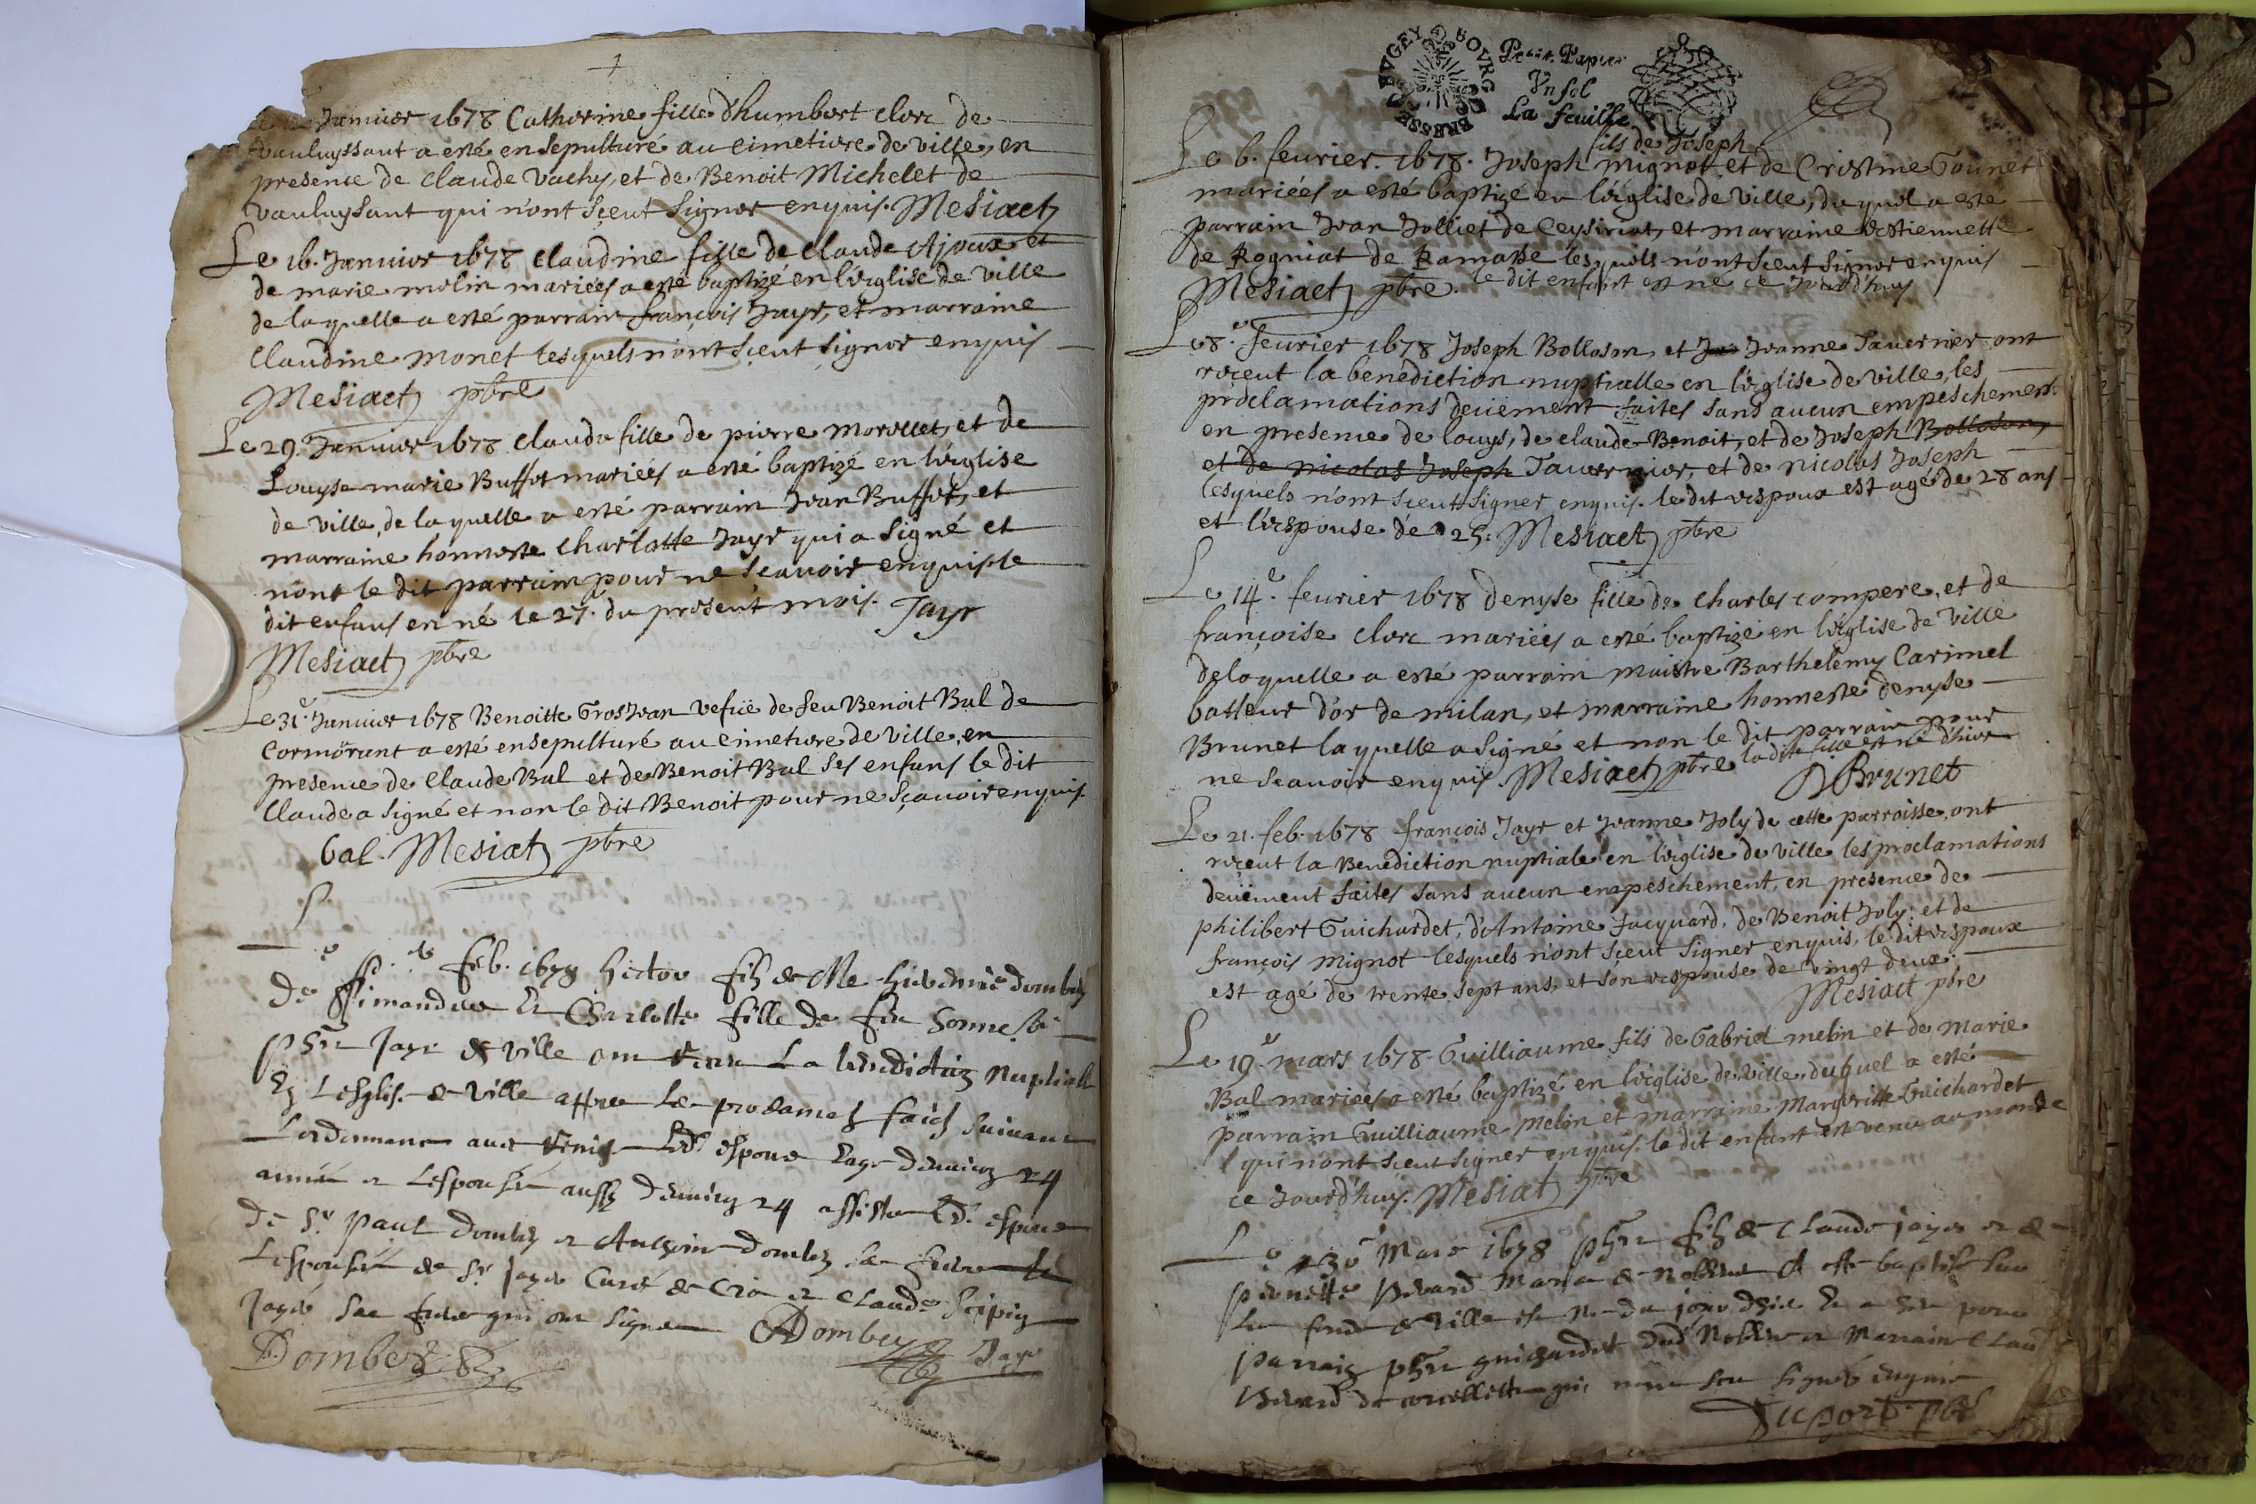 Janvier 1678 Catherine fille d'humbert clerc de
vauluyssant a esté ensepulturé au cimetiere de ville, en
presence de claude vachy, et de Benoit Michelet de
vauluysant qui n'ont sçeut signer enquis. Mesiact
Le 16. Janvier 1678 claudine fille de claude Ajoux et
de marie melin mariées a esté baptizé en l'église de ville
de laquelle a esté parrain françois Jayr, et marraine
Claudine monet lesquels n'ont sçeut signer enquis
Mesiact pbre
Le 29. Janvier 1678 clauda fille de pierre morellet, et de
Louyse marie Buffet mariées a esté baptizé en l'église
de ville, de laquelle a esté parrain Jean Buffet, et
marraine honneste charlotte Jayr qui a signé et
nont le dit parrain pour ne sçavoir enquis le
dit enfans en né le 27. du present mois. Jayr
Mesiact pbre
Le 31e Janvier 1678 Benoitte GrosJean vefue de feu Benoit Bal de
Cormorant a esté ensepulturé au cimetiere de ville, en
presence de Claude Bal et de Benoit Bal ses enfans le dit
Claude a signé et non le dit Benoit pour ne sçavoir enquis.
bal. Mesiat pbre
feb. 1678 hector filz de Me
de Simandre et Charlotte fille de feu
Jayr de ville ont la benediction nuptiale
En Lesglise de ville appres les faich suivant
Lordonnance espoux
année et Lespouse aussy 24 assiste espoux
de Sr paul dombey et Anthoine dombey
Lespouse de Sr Jayr Curé de et Claude
Jayr frere qui ont signe
Dombey ADombey Jayr
BRESSE BVGEY BOVRG
Petit Papier
Vn sol
La feuille
fils de Joseph
Le 6. feurier. 1678. Joseph mignot et de Cristine Gounet
mariées a esté baptizé en l'église de ville, duquel a esté
parrain Jean Jolliet de Ceysiriat, et marraine estiennette
de Rogniat de Ramasse lesquels n'ont sçeut signer enquis
Mesiact pbre. le dit enfant est né ce Jourd'huy
Le 8.e feurier 1678 Joseph Bolloson, et Jea Jeanne Tavernier ont
reçeut la benediction nuptialle en l'église de ville, les
proclamations deüement faites sans aucun empeschement.
en presence de louys, de claude Benoit, et de Joseph Bolloson,
et de nicolas Joseph Tavernier, et de nicolas Joseph
lesquels n'ont sçeut signer enquis. le dit espoux est agé de 28 ans
et l'espouse de 25. Mesiact pbre
Le 14.e feurier 1678 denyse fille de charles compere, et de
françoise clerc mariées a esté baptizé en l'église de ville
de laquelle a esté parrain maistre Barthelemy Carimel
batteur d'or de milan, et marraine honneste denyse
Brunet laquelle a signé et non le dit parrain pour
ne sçavoir enquis. Mesiact pbre la dite fille est né d'hier
DBrunet
Le 21. feb. 1678 françois Jayr et Jeanne Joly de cette parroisse, ont
reçeut la Benediction nuptiale en l'église de ville les proclamations
deüement faites sans aucun empeschement, en presence de
philibert Guichardet, d'Antoine Jacquard, de Benoit Joly, et de
françois mignot lesquels n'ont sçeut signer enquis, le dit espoux
est agé de trente sept ans, et son espouse de vingt deux.
Mesiact pbre
Le 19.e mars 1678. Guilliaume fils de Gabriel melin et de Marie
Bal mariées a esté baptizé en l'église de ville, duquel a esté
parrain Guilliaume Melin et marraine Marguerite Guichardet
qui n'ont sçeut signer enquis. le dit enfant est venu au monde
ce Jourd'huy. Mesiat pbre
Le 30e Mars 1678 filz de Claude jayr et de
Bevard a este baptisé
de ville du jour
parrain guichardet et Marraine
Bevard de qui signer enquis
Duport pbre